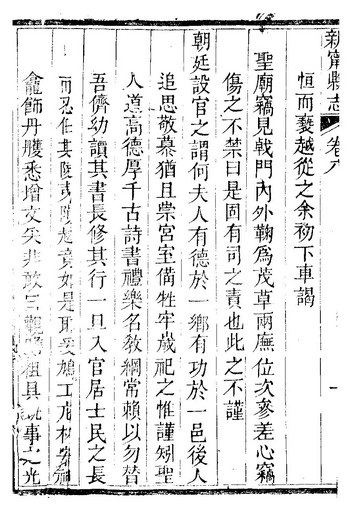 新甯縣志 卷八
恒而褻越從之余初下車謁
聖廟竊見戟門內外鞠爲茂草兩廡位次參差心竊
傷之不禁曰是固有司之責也此之不謹
朝廷設官之謂何夫人有德於一鄉有功於一邑後人
追思敬慕猶且崇宮室備牲牢歲祀之惟謹矧聖
人道高德厚千古詩書禮樂名教綱常賴以勿替
吾儕幼讀其書長修其行一旦入官居士民之長
而忍任其陵夷 如是耶爰鳩工庀材
龕飾丹雘悉增文矣非敢曰觀 粗具 事之光